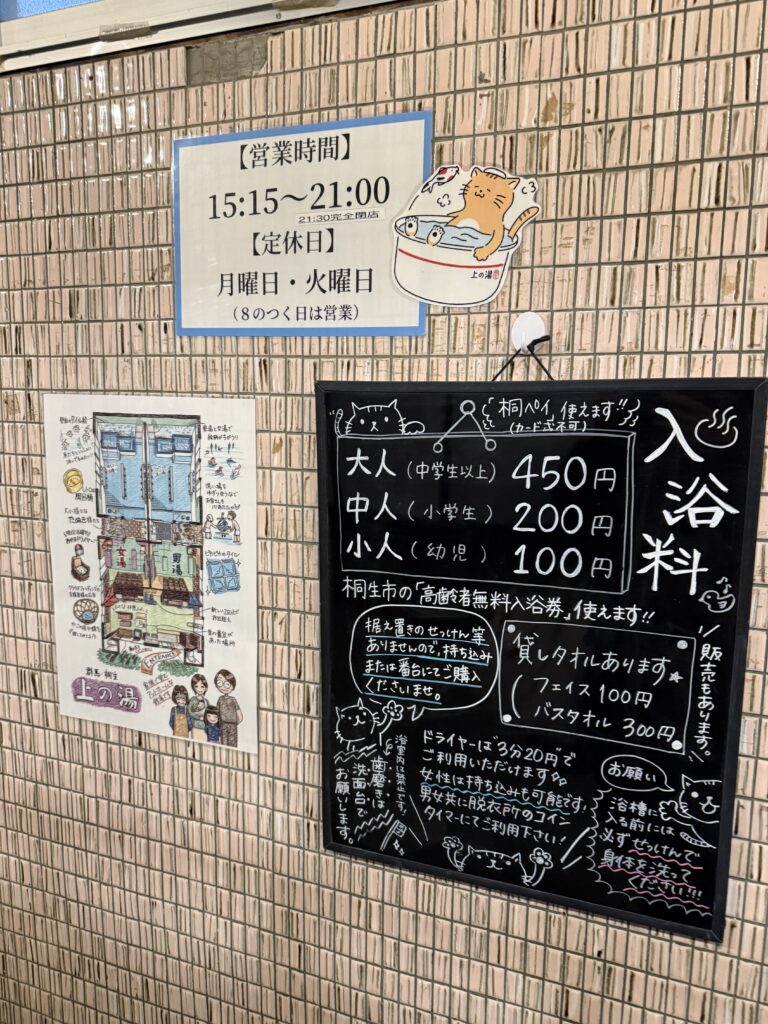 【営業時間】
15:15～21:00
21:30完全閉店
【定休日】
月曜日・火曜日
（８のつく日は営業）
上の湯
女湯
男湯
ENTRANCE
群馬・桐生
上の湯
入浴料
「桐ペイ」使えます!!
(カード式不可)
大人(中学生以上) 450円
中人(小学生) 200円
小人(幼児) 100円
桐生市の「高齢者無料入浴券」使えます!!
据え置きのせっけん等
ありませんので、持ち込み
または番台にてご購入
くださいませ。
貸しタオルあります
フェイス 100円
バスタオル 300円
販売もあります。
浴室内は禁止です!!
歯磨きは
洗面台で
お願いします。
ドライヤーは"3分20円"で
ご利用いただけます
女性は持ち込みも可能です!
男女共に脱衣所のコイン
タイマーにてご利用下さい!
お願い
浴槽に
入る前には
必ずせっけんで
身体を洗って
ください!!!